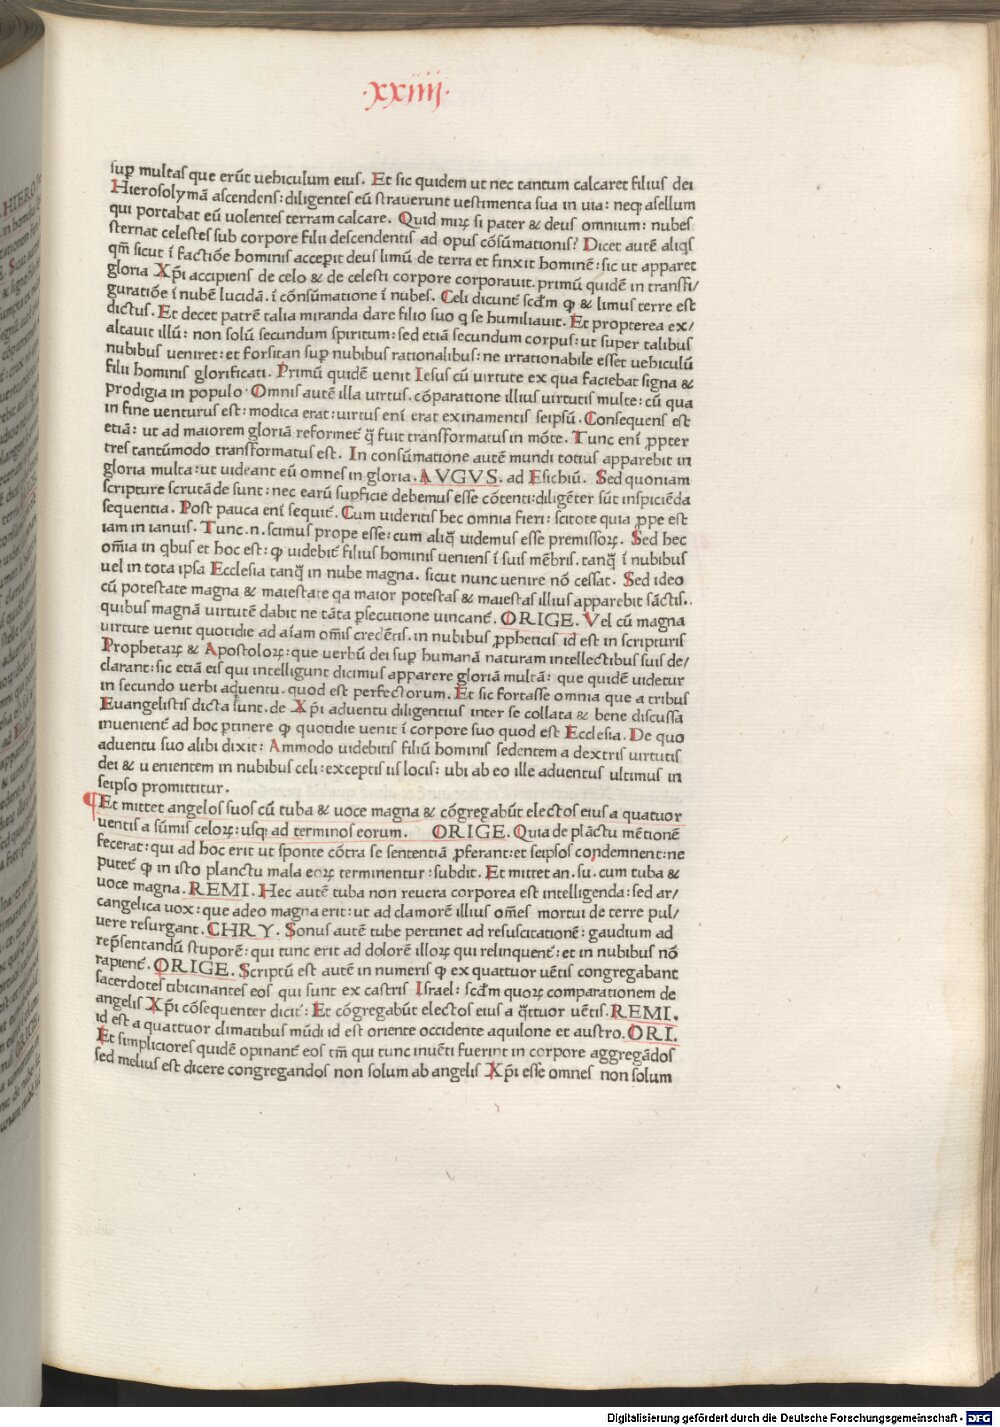 ·xxiiij·
suꝑ multas que erūt uehiculum eius. Et sic quidem ut nec tantum calcaret filius dei
Hierosolymā ascendens: diligentes eū strauerunt uestimenta sua in uia: neqꝫ asellum
qui portabat eū uolentes terram calcare. Quid miꝝ si pater & deus omnium: nubes
sternat celestes sub corpore filii descendentis ad opus cōsūmationis? Dicet autē aliqs
qm̄ sicut ī factiōe hominis accepit deus limū de terra et finxit hominē: sic ut apparet
gloria Xp̄i accipiens de celo & de celesti corpore corporauit. primū quidē in transfi/
guratiōe ī nubē lucidā. ī cōsūmatione ī nubes. Celi dicunt̄ scd̄m ꝙ & limus terre est
dictus. Et decet patrē talia miranda dare filio suo q se humiliauit. Et propterea ex/
altauit illū: non solū secundum spiritum: sed etiā secundum corpus: ut super talibus
nubibus ueniret: et forsitan suꝑ nubibus rationalibus: ne irrationabile esset uehiculū
filii hominis glorificati. Primū quidē uenit Iesus cū uirtute ex qua faciebat signa &
prodigia in populo· Omnis autē illa uirtus. cōparatione illius uirtutis multe: cū qua
in fine uenturus est: modica erat: uirtus eni erat exinamentis seipsū. Consequens est
etiā: ut ad maiorem gloriā reformet̄ q̄ fuit transformatus in mōte. Tunc eni ꝓpter
tres tantūmodo transformatus est. In consūmatione autē mundi totius apparebit in
gloria multa: ut uideant eū omnes in gloria. AVGVS. ad Esichiū. Sed quoniam
scripture scrutāde sunt: nec earū suꝑficie debemus esse cōtenti: diligēter sūt inspiciēda
sequentia. Post pauca eni sequit̄. Cum uideritis hec omnia fieri: scitote quia ꝓpe est
iam in ianuis. Tunc .n. scimus prope esse: cum aliq̄ uidemus esse premissoꝝ. Sed hec
om̄ia in qbus et hoc est: ꝙ uidebit̄ filius hominis ueniens ī suis mēbris. tanq̄ ī nubibus
uel in tota ipsa Ecclesia tanq̄ in nube magna. sicut nunc uenire nō cessat. Sed ideo
cū potestate magna & maiestate qa maior potestas & maiestas illius apparebit sāctis..
quibus magnā uirtutē dabit ne tāta ꝑsecutione uincant̄. ORIGE. Vel cū magna
uirtute uenit quotidie ad aīam om̄is credētis. in nubibus ꝓpheticis id est in scripturis
Prophetaꝝ & Apostoloꝝ: que uerbū dei suꝑ humanā naturam intellectibus suis de/
clarant: sic etiā eis qui intelligunt dicimus apparere gloriā multā: que quidē uidetur
in secundo uerbi aduentu. quod est perfectorum. Et sic fortasse omnia que a tribus
Euangelistis dicta sunt. de Xp̄i aduentu diligentius inter se collata & bene discussa
inuenient̄ ad hoc ꝑtinere ꝙ quotidie uenit ī corpore suo quod est Ecclesia. De quo
aduentu suo alibi dixit: Ammodo uidebitis filiū hominis sedentem a dextris uirtutis
dei & u enientem in nubibus celi: exceptis iis locis: ubi ab eo ille aduentus ultimus in
seipso promittitur.
¶Et mittet angelos suos cū tuba & uoce magna & cōgregabūt electos eius a quatuor
uentis a sūmis celoꝝ: usqꝫ ad terminos eorum. ORIGE. Quia de plāctu mētionē
fecerat: qui ad hoc erit ut sponte cōtra se sententiā ꝓferant: et seipsos condemnent: ne
putet̄ ꝙ in isto planctu mala eoꝝ terminentur: subdit. Et mittet an. su. cum tuba &
uoce magna. REMI. Hec autē tuba non reuera corporea est intelligenda: sed ar/
cangelica uox: que adeo magna erit: ut ad clamorē illius om̄es mortui de terre pul/
uere resurgant. CHRY. Sonus autē tube pertinet ad resuscitationē: gaudium ad
rep̄sentandū stuporē: qui tunc erit ad dolorē illoꝝ qui relinquent̄: et in nubibus nō
rapient̄. ORIGE. Scriptū est autē in numeris ꝙ ex quattuor uētis congregabant
sacerdotes tibicinantes eos qui sunt ex castris Israel: scd̄m quoꝝ comparationem de
angelis Xp̄i cōsequenter dicit̄: Et cōgregabūt electos eius a q̄ttuor uētis. REMI.
id est a quattuor climatibus mūdi id est oriente occidente aquilone et austro. ORI.
Et simpliciores quidē opinant̄ eos tm̄ qui tunc inuēti fuerint in corpore aggregādos
sed melius est dicere congregandos non solum ab angelis Xp̄i esse omnes non solum
Digitalisierung gefördert durch die Deutsche Forschungsgemeinschaft - DFG